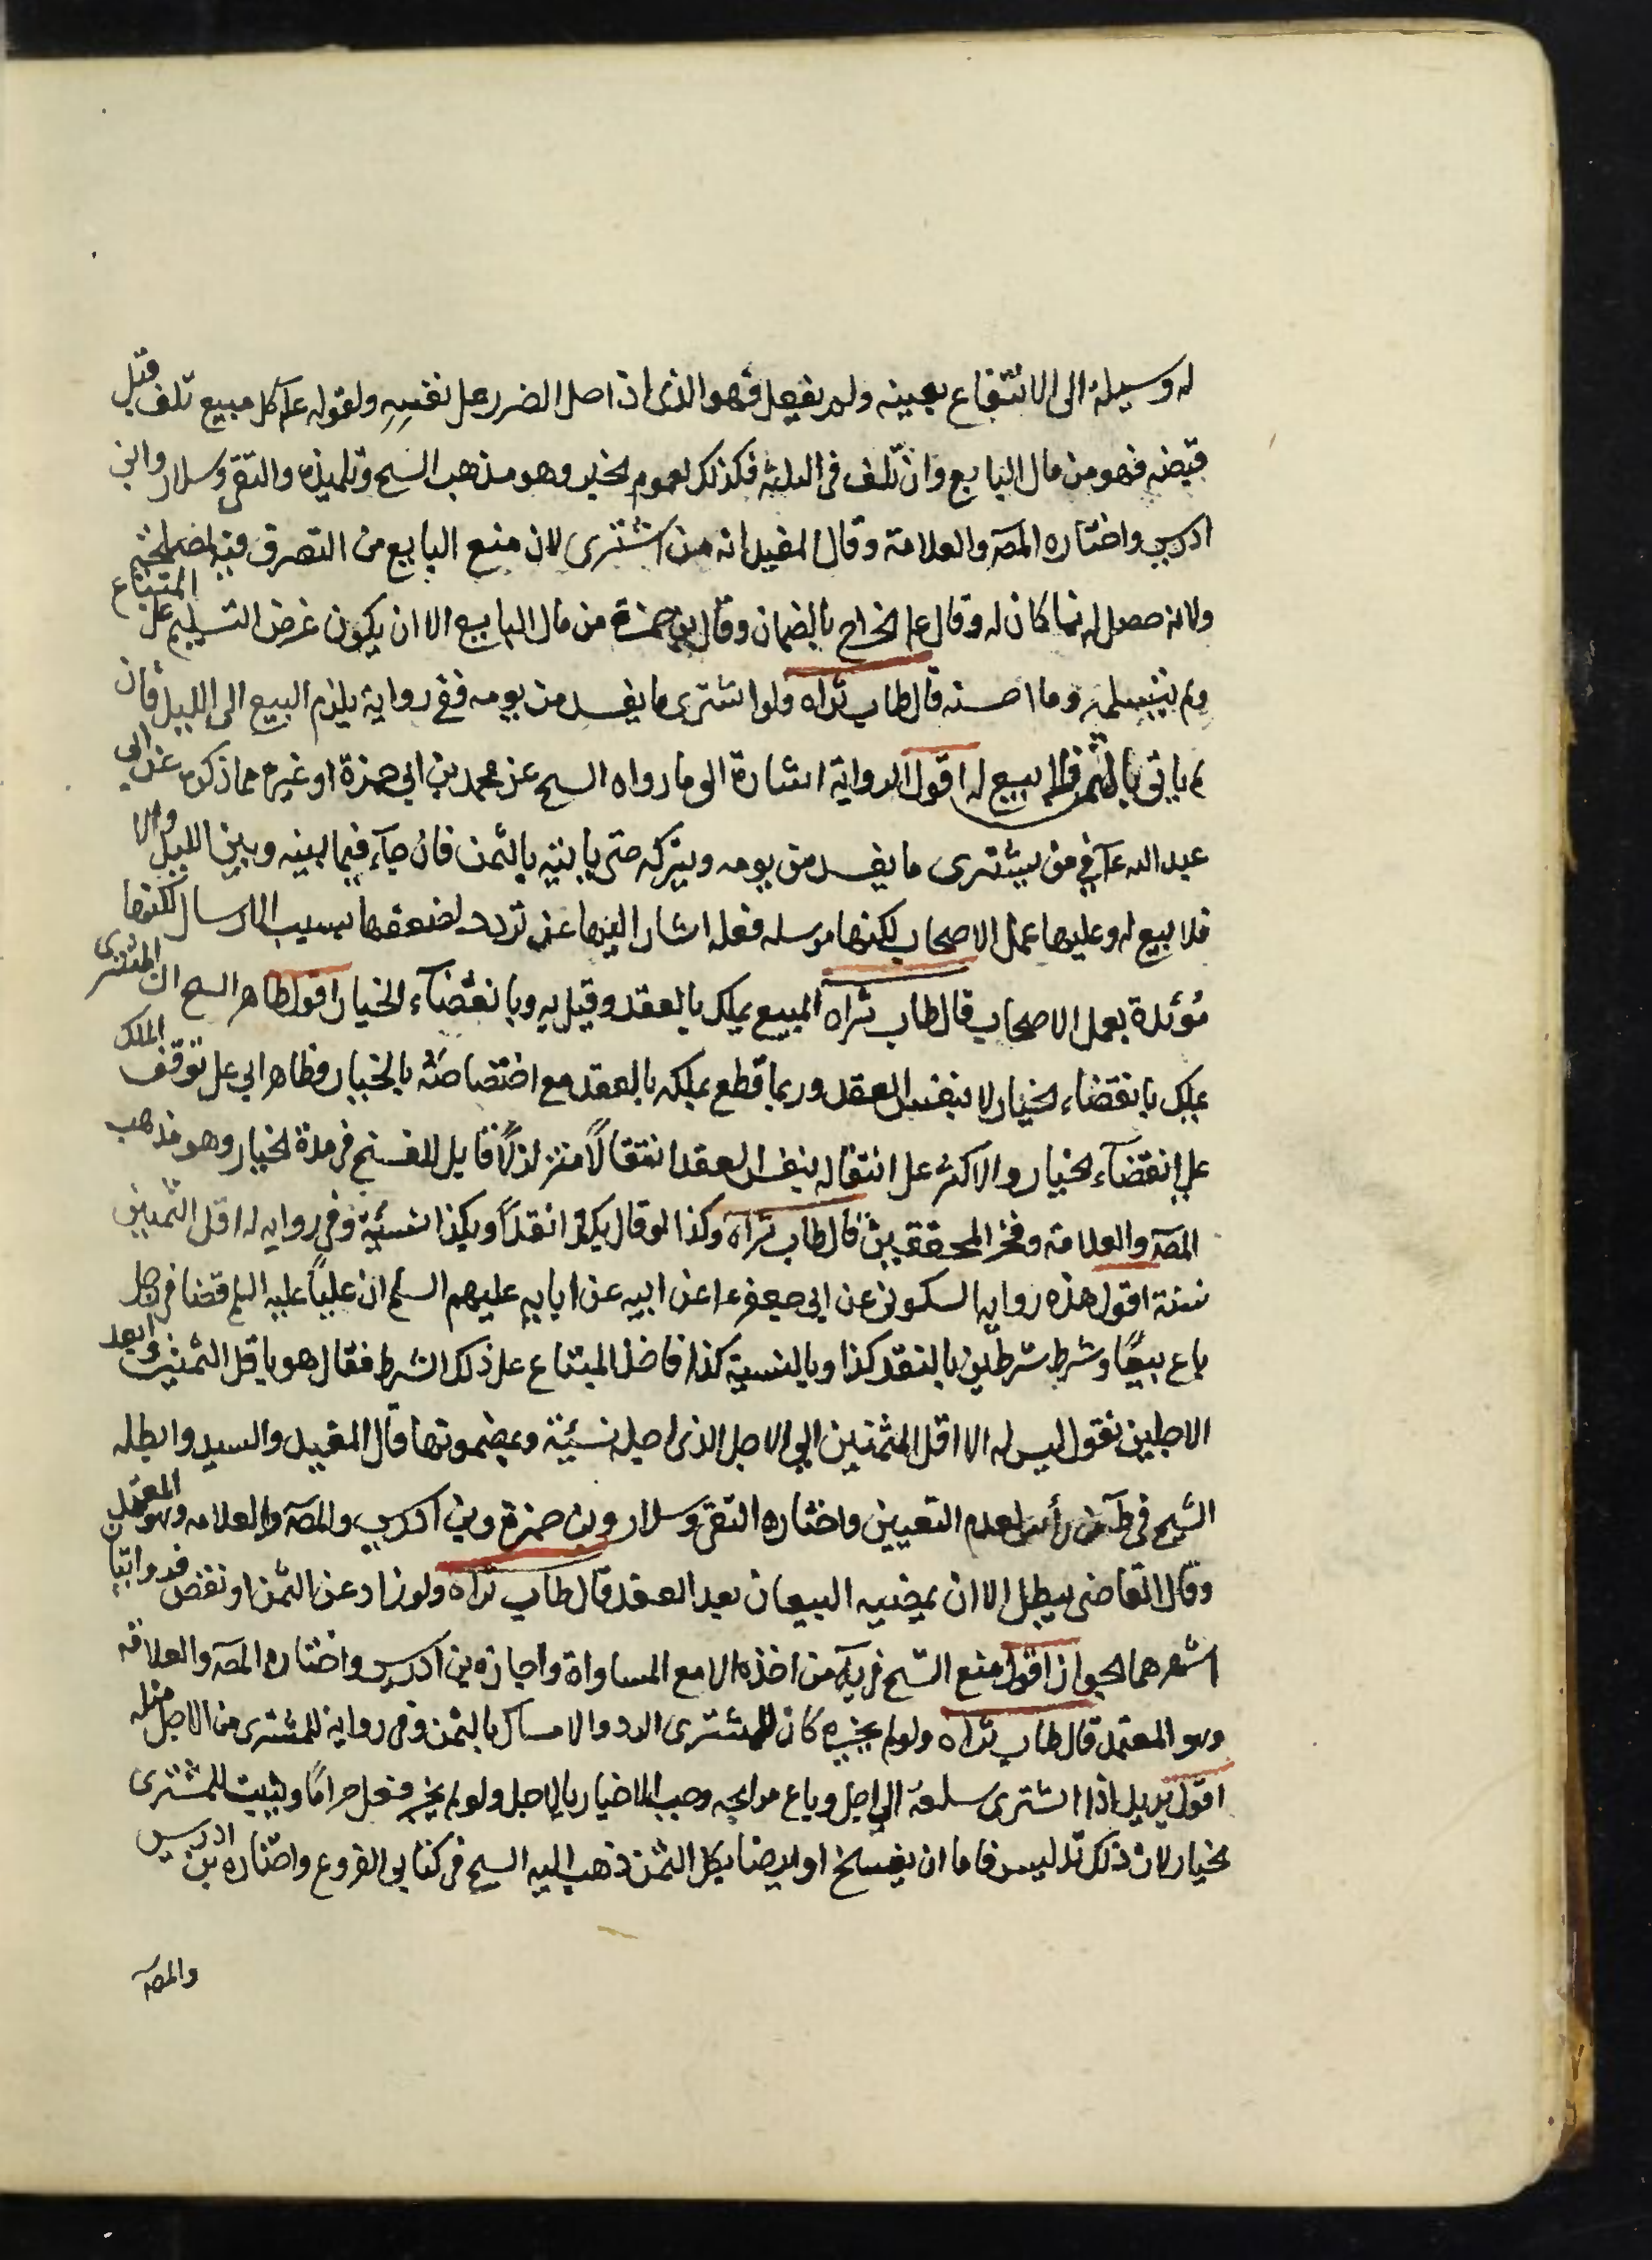 له وسيلة الى الانتفاع بعينه ولم يفعل فهو الذى ادخل الضرر على نفسه ولقوله عآ كل مبيع تلف قبل
قبضه فهو من مال البايع وان تلف فى الثلثه فكذلك لعموم الخبر وهو مذهب الشيخ وتلميذه والتقى وسلار وابن
ادريس واختاره المصآ والعلامة وقال المفيد انه من المشترى لان منع البايع من التصرف فيه لمصلحته
ولانه حصل له نما كان له وقال عم الخراج بالضمان وقال بن حمزة من مال البايع الا ان يكون عرض التسليم على المبتاع
ولم يتسلمه وما احسنه قال طاب ثراه ولو اشترى ما يفسد من يومه ففى رواية يلزم البيع الى الليل فان
لم ياتى بالثمن فلا بيع له اقول الرواية اشارة الى ما رواه الشيخ عن محمد بن ابي حمزة او غيره عمن ذكره عن ابى
عبد الله عآ في من يشترى ما يفسد من يومه ويتركه حتى يا تيه بالثمن فان جآء فيما بينه وبين الليل والا
فلا بيع له وعليها عمل الاصحاب لكنها مرسله فلعله اشار اليها عن تردد لضعفها بسبب الارسال لكنها
مؤيدة بعمل الاصحاب قال طاب ثراه المبيع يملك بالعقد وقيل به وبانقضآء الخيار اقول ظاهر الشيخ ان المشترى
يملك بانقضاء الخيار لا بنفس العقد وربما قطع بملكه بالعقد مع اختصاصه بالخيار وظاهر ابى على توقف الملك
على انقضآء الخيار والاكثر على انتقاله بنفس العقد انتقالًا متزلزلًا قابل للفسخ فى مدة الخيار وهو مذهب
المصآ والعلامة وفخر المحققين قال طاب ثراه وكذا لو قال بكذا نقدًا وبكذا نسيئة وفى روايه له اقل الثمنين
نسئة اقول هذه روايه السكونى عن ابى جعفر عا عن ابيه عن ابايه عليهم السلم ان عليًا عليه السلم قضا فى رجل
باع بيعًا وشرط شرطين بالنقد كذا وبالنسية كذا فاخذ المبتاع على ذلك الشرط فقال هو باقل الثمنين وابعد
الاجلين نقول ليس له الا اقل الثمنين الى الاجل الذى اجله نسيئة وبمضمونها قال المفيد والسيد وابطله
الشيخ فى طآ لعدم التعيين واختاره التقى وسلار وبن حمزة وبن ادريس والمصآ والعلامه وهو المعتمد
وقال القاضى يبطل الا ان يمضيه البيعان بعد العقد قال طاب ثراه ولو زاد عن الثمن او نقص فروايتان
اشهرهما الجواز اقول منع الشيخ فى يآ من اخذه الا مع المساواة واجازه بن ادريس واختاره المصآ والعلامه
وهو المعتمد قال طاب ثراه ولو لم يخبره كان للمشترى الرد والامساك بالثمن وفى رواية للمشترى من الاجل مثله
اقول يريد اذا اشترى سلعة الى اجل وباع مرابحه وجب الاخبار بالاجل ولو لم يخبر فعل حرامًا ويثبت للمشترى
الخيار لان ذلك تدليس فاما ان يفسخ او يرضا بكل الثمن ذهب اليه الشيخ فى كتابى الفروع واختاره بن ادريس
والمصآ